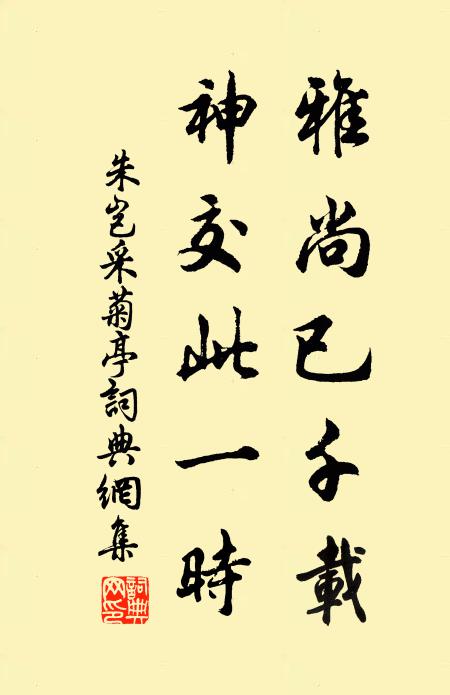 雅尚已千載
神交此一時
朱岂采菊亭詞典網集
詞典網印